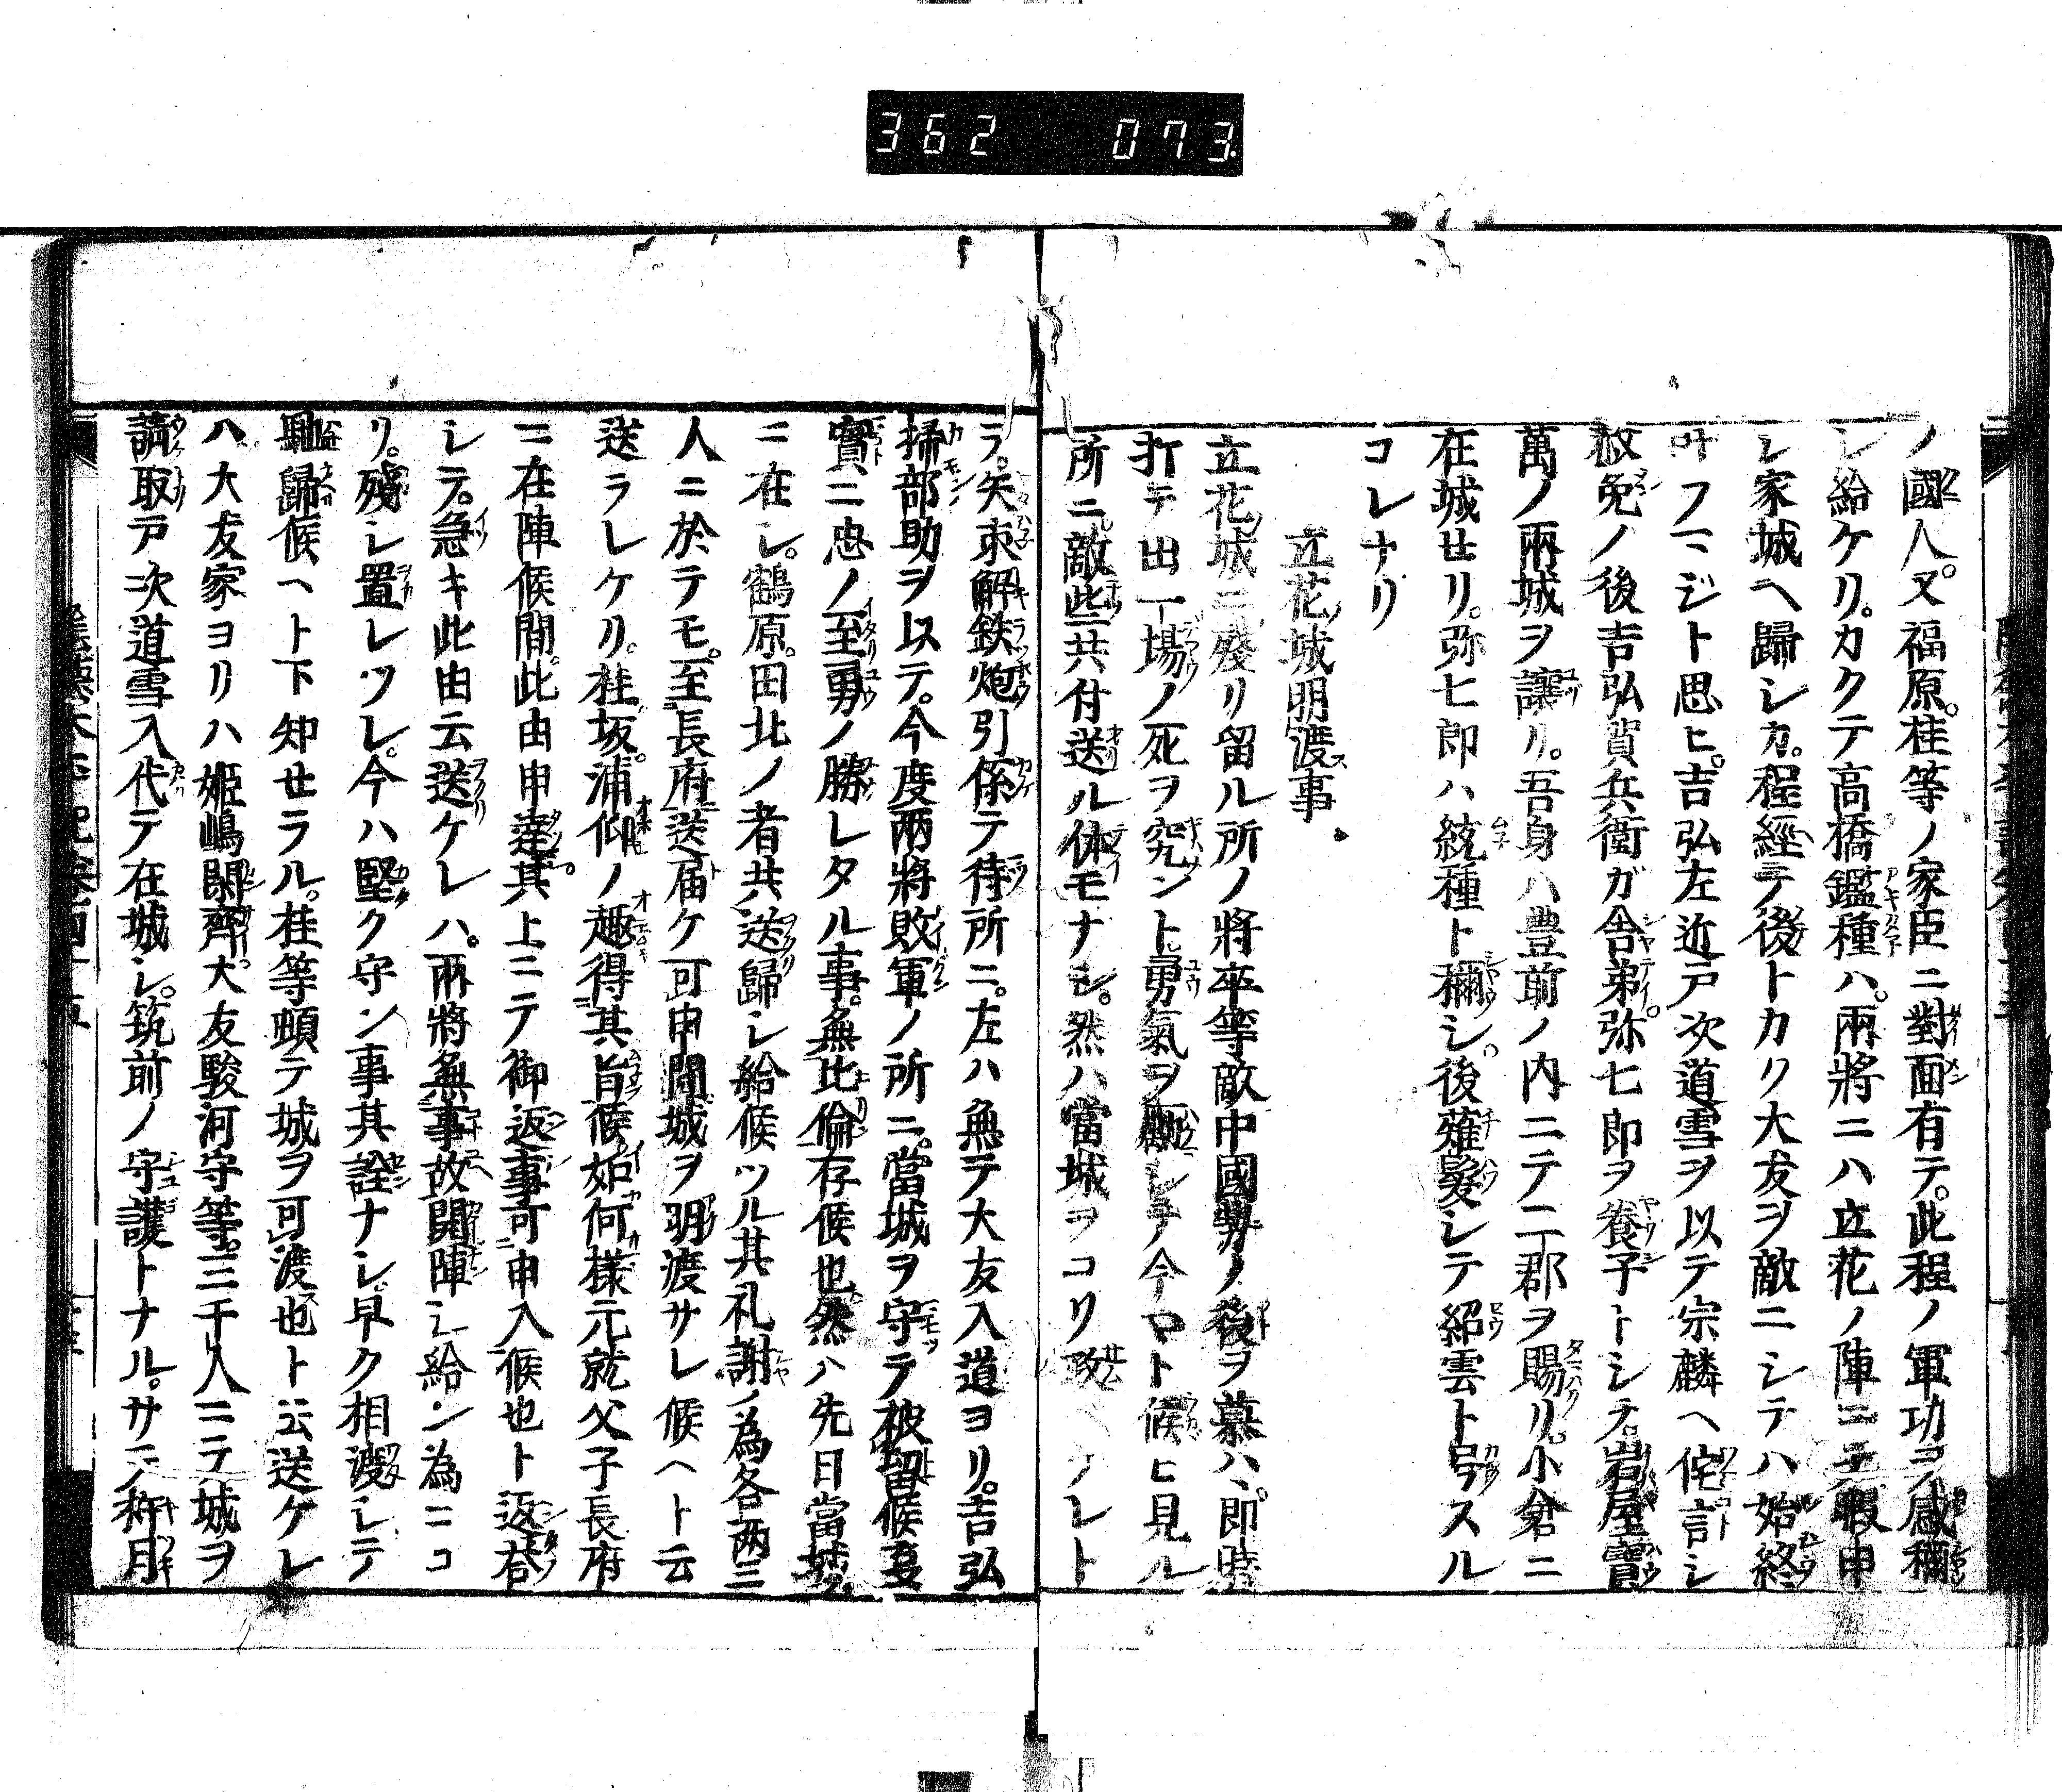 362 073
ノ國人。又福原。桂等ノ家臣ニ對面有テ。此程ノ軍功コソ感稱
シ給ケリ。カクテ高橋鑑種ハ。兩將ニハ立花ノ陣ニテ暇申
シ家城ヘ歸シカ。程經テ後トカク大友ヲ敵ニシテハ始終
叶フマジト思ヒ。吉弘左近戸次道雪ヲ以テ宗麟ヘ侘言シ
赦免ノ後吉弘賀兵衞ガ舎弟。弥七郎ヲ養子トシテ。岩屋寳
萬ノ兩城ヲ讓リ。吾身ハ豊前ノ内ニテ二郡ヲ賜リ。小倉ニ
在城セリ。弥七郎ハ統種ト稱シ。後薙髪シテ紹雲ト号スル
コレナリ
立花ノ城明渡ス事
立花ノ城ニ殘リ留ル所ノ將卒等敵中國勢ノ後ヲ慕ハヽ。即時
打テ出一場ノ死ヲ究ント勇氣ヲ勵シテ今ヤト候ヒ見ル
所ニ。敵些共付送ル体モナシ。然ハ當城ヲコリ攻 レト
ラ。矢束解鉄炮引係テ待所ニ。左ハ無テ大友入道ヨリ。吉弘
掃部助ヲ以テ。今度兩將敗軍ノ所ニ。當城ヲ守テ被留候事
實ニ忠ノ至勇ノ勝レタル事。無比倫存候也然ハ先日當城
ニ在シ。鶴原。田北ノ者共送歸シ給候ツル其礼謝ノ為各兩三
人ニ於テモ。至長府送届ケ可申間城ヲ明渡サレ候ヘト云
送ラレケリ。桂坂。浦仰ノ趣得其旨候如何樣元就父子長府
ニ在陣候間。此由申達其。上ニテ御返事可申入候也ト返答
シテ。急キ此由云送ケレハ。兩將無事故開陣シ給ン為ニコ
リ。殘シ置レツレ。今ハ堅ク守ン事其詮ナシ。早ク相渡シテ
馳歸候ヘト下知セラル。桂等頓テ城ヲ可渡也ト云送ケレ
ハ大友家ヨリハ姫嶋閑齊。大友駿河守等。三千人ニテ城ヲ
請取戸次道雪入代テ在城シ。筑前ノ守護トナル。サテ杵月